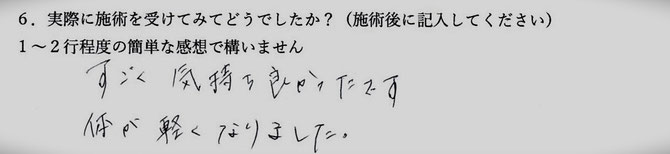 6．実際に施術を受けてみてどうでしたか？（施術後に記入してください）
1～2行程度の簡単な感想で構いません
すごく気持ち良かったです
体が軽くなりました。